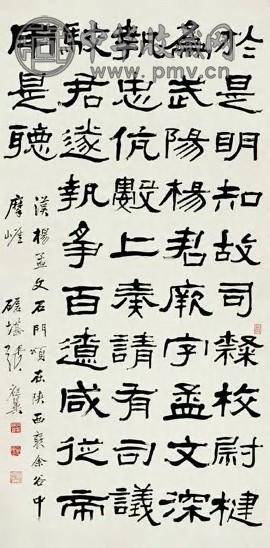 中华收藏网
www.pmv.cn
於是明知故司隸校尉楗
為武陽楊君厥字孟文深
執忠伉數上奏請有司議
駮君遂執爭百遼咸從帝
用是聽
漢楊孟文石門頌在陝西褒余谷中
摩崖 磥堪張祖翼